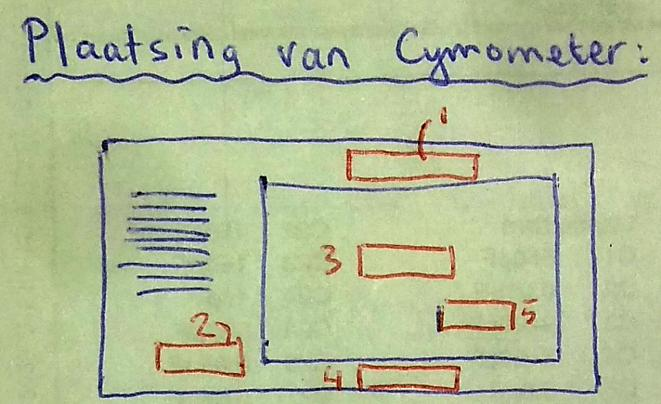 Plaatsing van Cymometer:
1
3
5
2
4